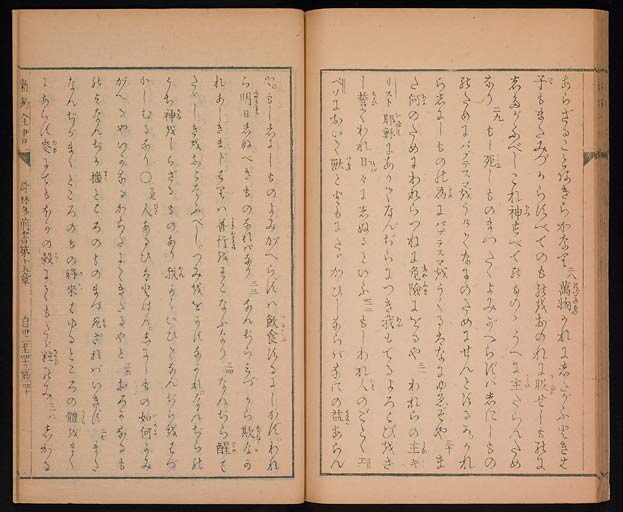 あらざることあきらかなり 二八 萬物これにしたがふときは
子もまたみづからすべてのものをおのれに服せしものに
したがふべしこれ神すべてのもののうへに主たらんため
なり 二九 もし死しものまつたくよみがへらずバ死にしもの
のためにバプテスマをうくるものなにのためにせんとするかかれ
ら死にしものの為にバプテスマをうくるはなにゆゑぞや 三十 ま
た何のためにわれらつねに危險にをるや 三一 われらの主キ
リスト耶穌にありてなんぢらにつき我もてるよろこびをさ
し誓てわれ日々に死ぬるといふ 三二 もしわれ人のごとくエ
ペソにおいて獸とともにたたかひしならバなにの益あらん
もし死にしものよみがへらずバ飲食するにしかずわれ
ら明日しぬべきものなれバなり 三三 なんぢらみづから欺なか
れあしきまじはりは善行をそこなふなり 三四 なんぢら醒て
ただしきをおこなふべしつみををかすなかれなんぢらの
うち神をしらざるものあり我かくいひてなんぢらをはづ
かしむるなり○ 三五 人あるひはとはん死にしもの如何よみ
がへるやいかなるからだにてきたるやと 三六 おろかなるも
のよなんぢが播ところのものまづ死ざれバいきず 三七 また
なんぢがまくところのもの後來はゆるところの體をまく
にあらず麥にてもほかの穀にてもただ粒のみ 三八 しかるに
新約全書 哥林多前書第十五章